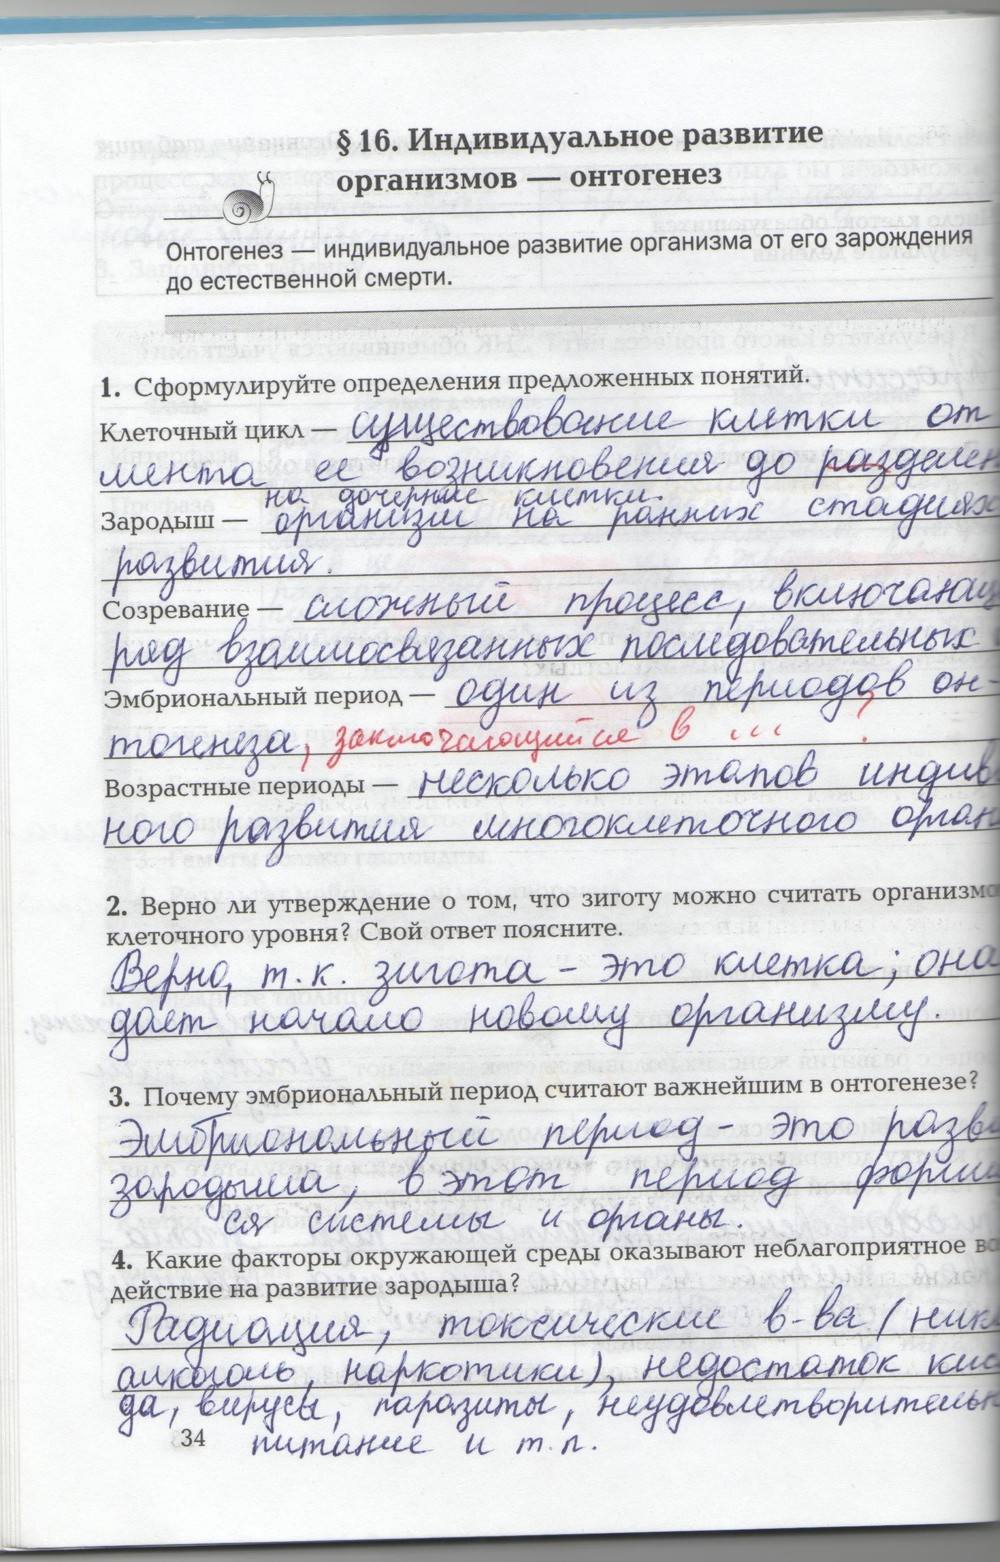 § 16. Индивидуальное развитие
организмов — онтогенез
Онтогенез — индивидуальное развитие организма от его зарождения
до естественной смерти.
1. Сформулируйте определения предложенных понятий.
Клеточный цикл — существование клетки от
мента ее возникновения до разделен
на дочерние клетки.
Зародыш — организм на ранних стадиях
развития.
Созревание — сложный процесс, включающ
ряд взаимосвязанных последовательных
Эмбриональный период — один из периодов он-
тогенеза, заключающийся в ...
Возрастные периоды — несколько этапов индив
ного развития многоклеточного орган
2. Верно ли утверждение о том, что зиготу можно считать организмо
клеточного уровня? Свой ответ поясните.
Верно, т.к. зигота – это клетка; она
дает начало новому организму.
3. Почему эмбриональный период считают важнейшим в онтогенезе?
Эмбриональный период – это разви
зародыша, в этот период форми
ся системы и органы.
4. Какие факторы окружающей среды оказывают неблагоприятное во
действие на развитие зародыша?
Радиация, токсические в-ва (нико
алкоголь, наркотики), недостаток кис
да, вирусы, паразиты, неудовлетворительн
34 питание и т.п.